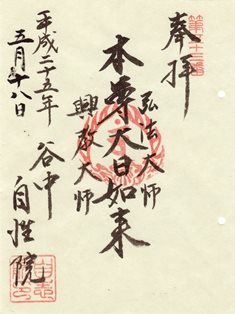 奉拝
弘法大師
本尊大日如来
興教大師
谷中
自性院
平成二十五年
五月十八日